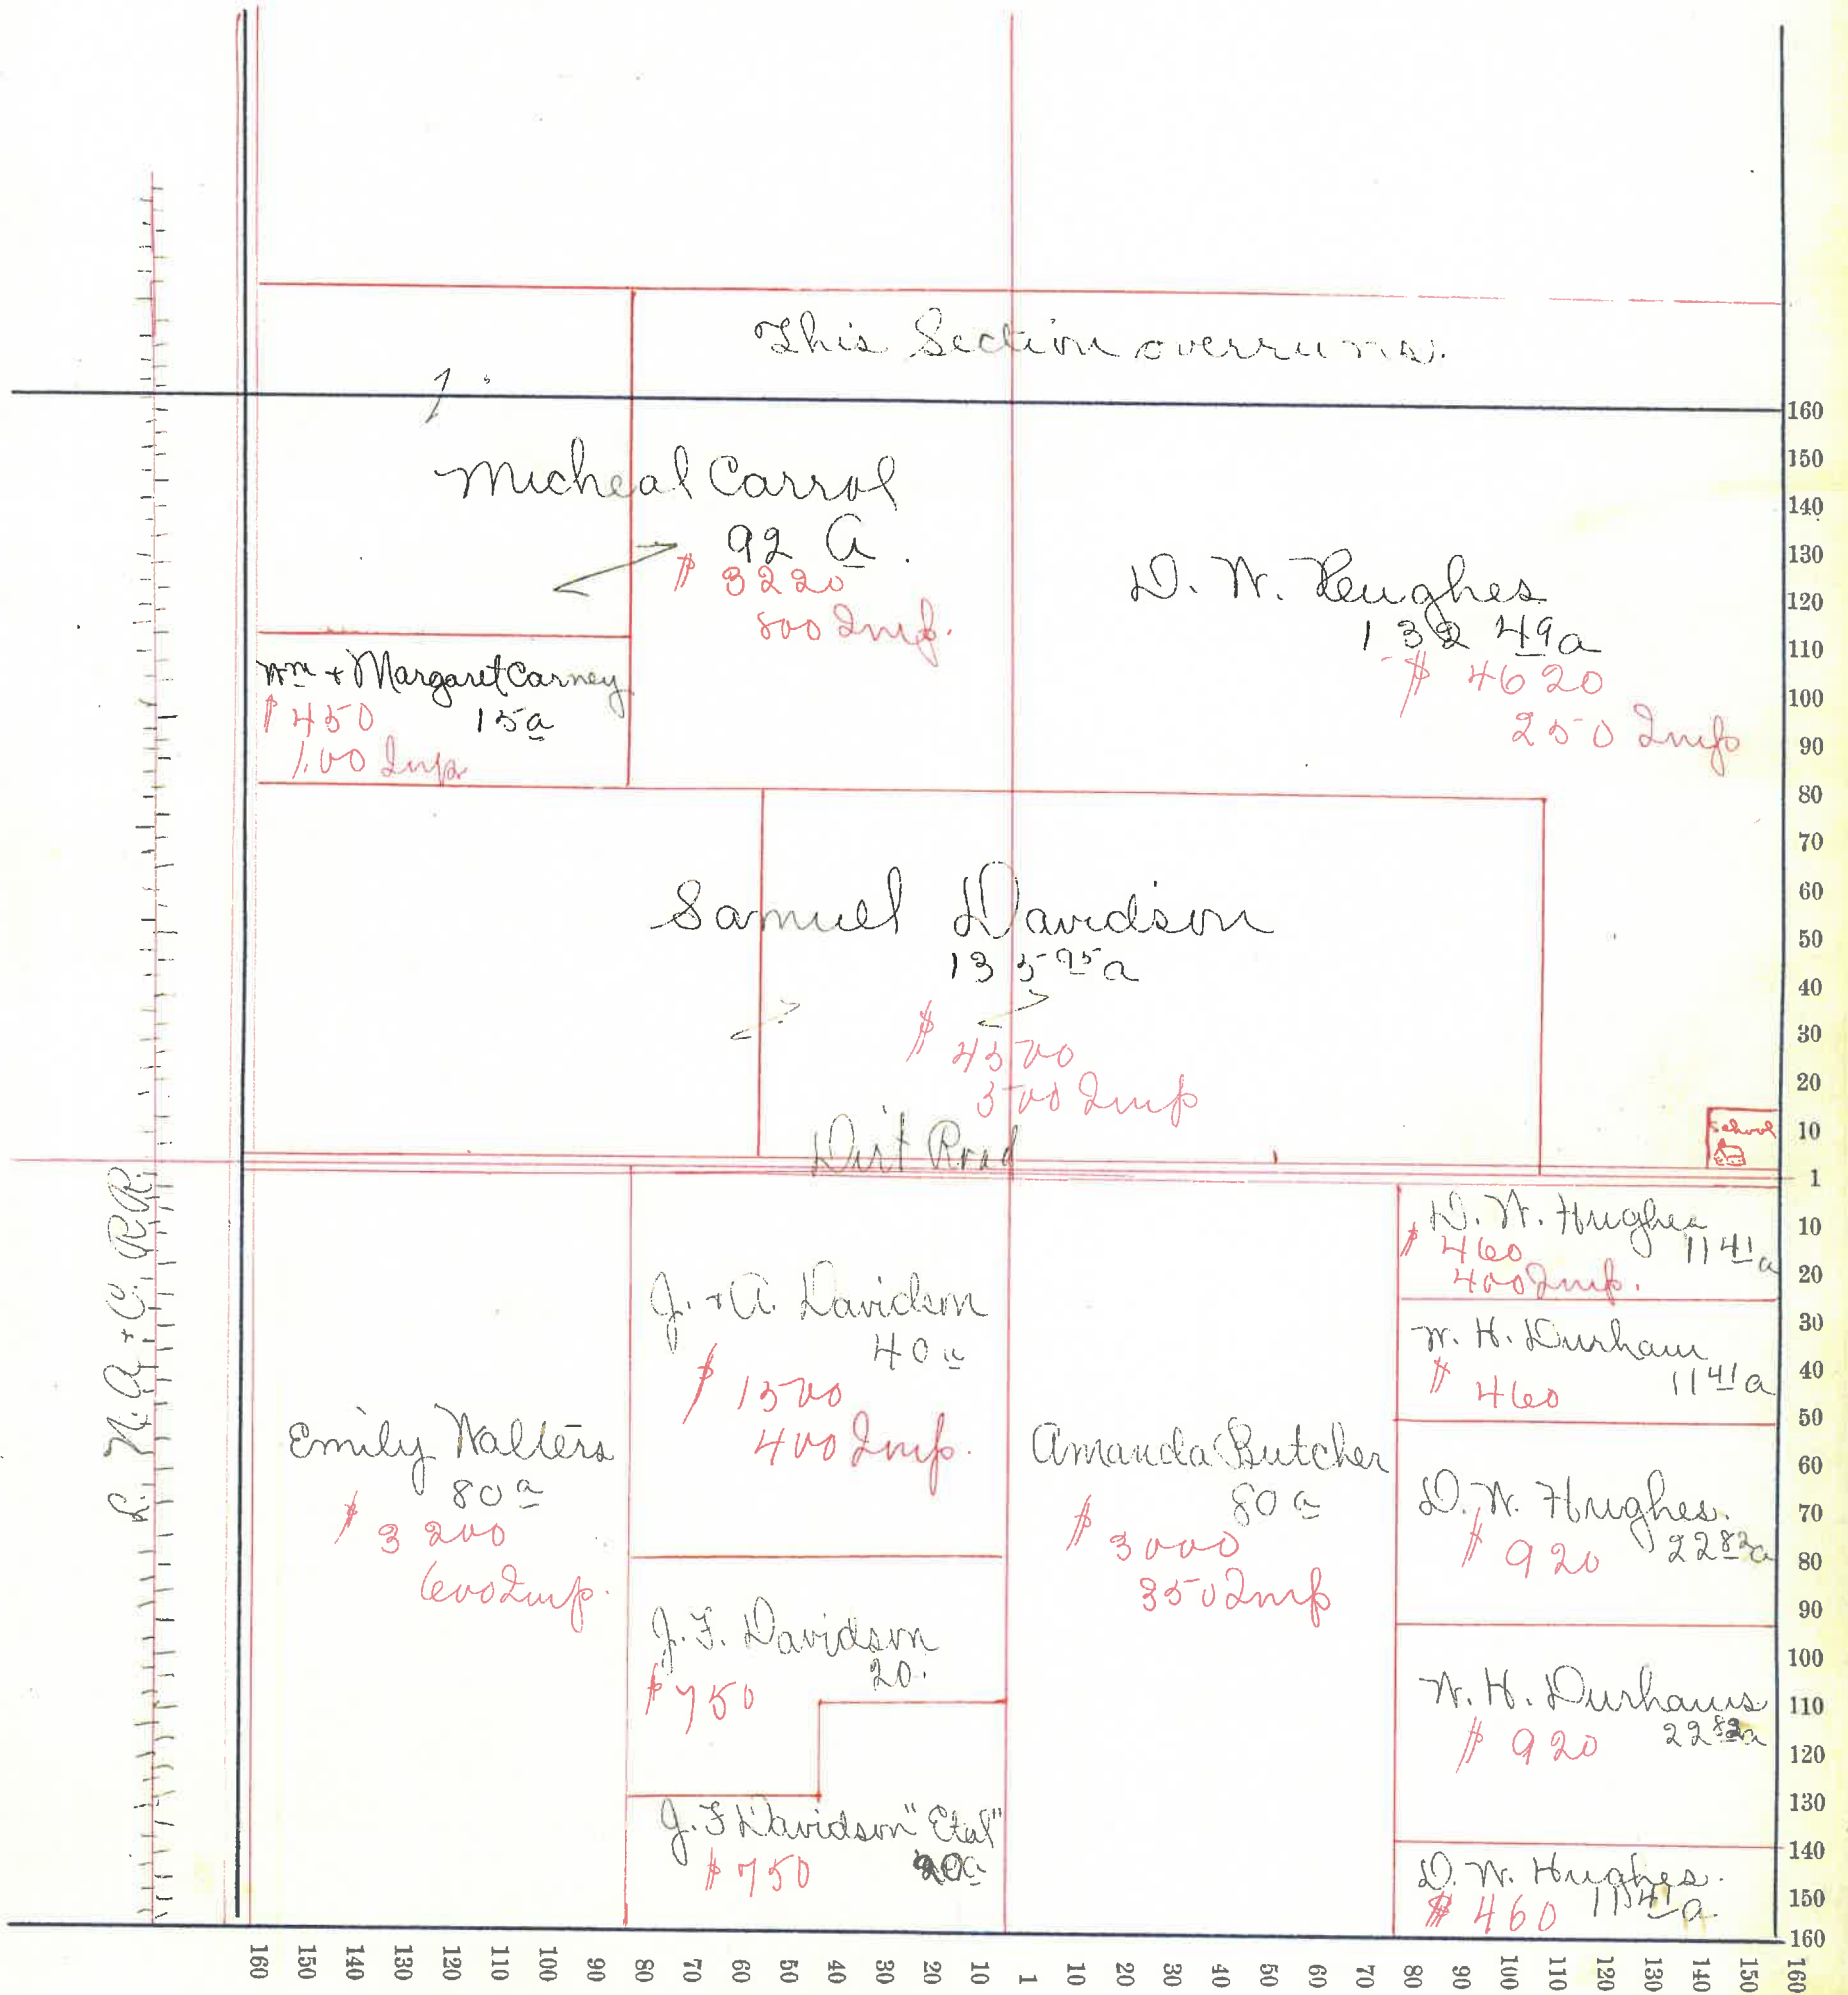 This Section overruns.
Micheal Carrol
92 a.
$ 3220
800 Imp.
D. W. Hughes
132 49 a
$ 4620
250 Imp
Wm + Margaret Carney
$ 450 15 a
100 Imp
Samuel Davidson
135 95 a
$ 4500
500 Imp
School
Dirt Road
L. N. A. + C. RR.
Emily Walters
80 a
$ 3200
600 Imp.
J. + A. Davidson
40 a
$ 1500
400 Imp.
J. F. Davidson
20.
$ 750
J. F Davidson "Etal"
$ 750 20 a
Amanda Butcher
80 a
$ 3000
350 Imp
D. W. Hughes
$ 460 11 41 a
400 Imp.
W. H. Durham
$ 460 11 41 a
D. W. Hughes.
$ 920 22 82 a
W. H. Durham
$ 920 22 82 a
D. W. Hughes.
$ 460 11 41 a
160
150
140
130
120
110
100
90
80
70
60
50
40
30
20
10
1
10
20
30
40
50
60
70
80
90
100
110
120
130
140
150
160
160 150 140 130 120 110 100 90 80 70 60 50 40 30 20 10 1 10 20 30 40 50 60 70 80 90 100 110 120 130 140 150 160